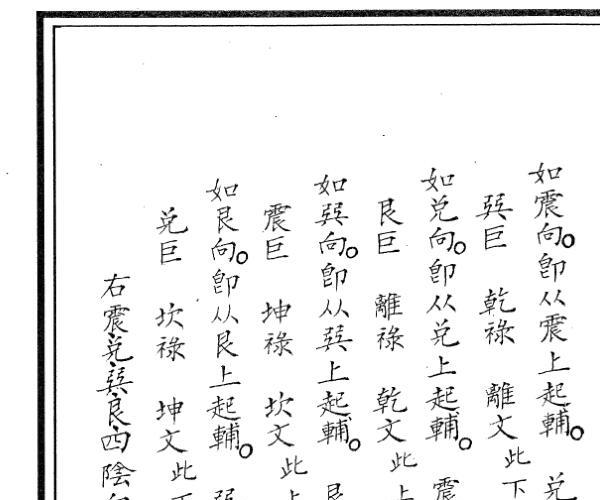 如震向。卽从震上起輔。兌
巽巨 乾祿 離文 此下
如兌向。卽从兌上起輔。震
艮巨 離祿 乾文 此上
如巽向。卽从巽上起輔。艮
震巨 坤祿 坎文 此上
如艮向。卽从艮上起輔。巽
兌巨 坎祿 坤文 此下
右震兌巽艮四陰